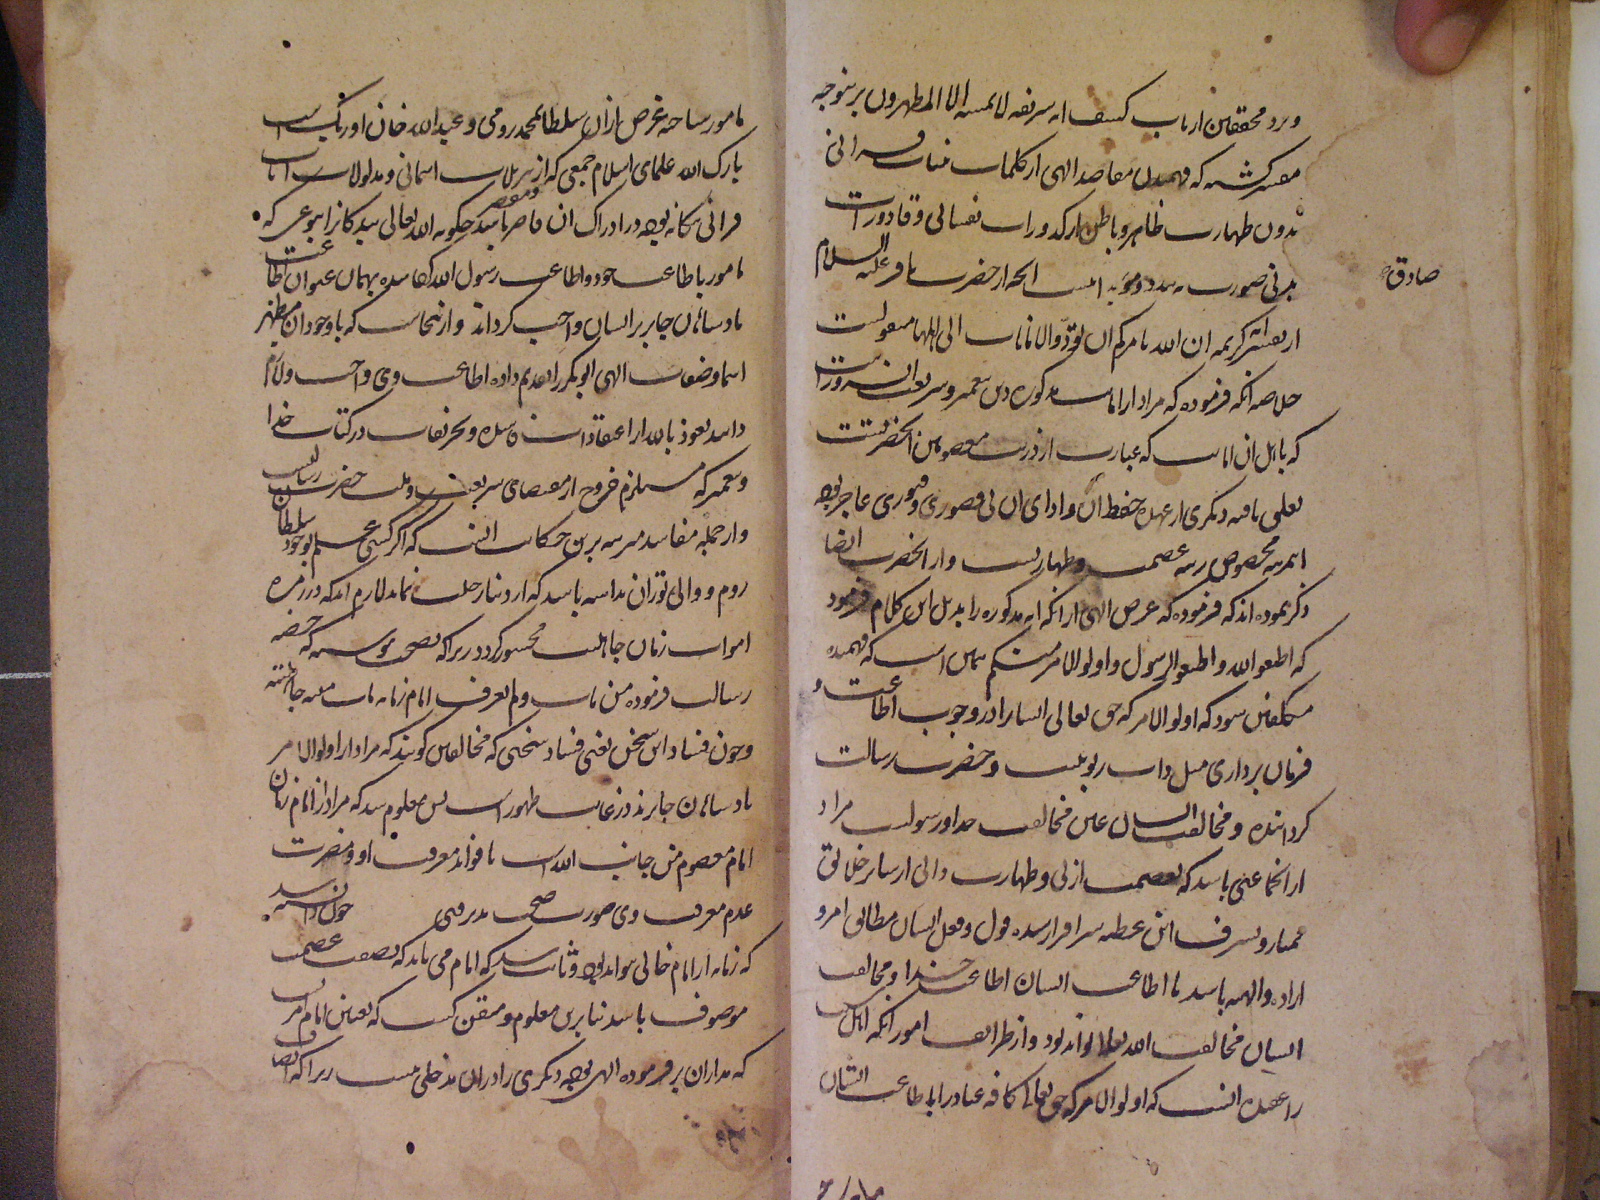 و نزد محققین ارباب کشف آیه شریفه لا یمسه الا المطهرون برین وجه
مفسر گشته که فهمیدن مقاصد الهی از کلمات بینات قرآنی
بدون طهارت ظاهر و باطن از کدورات نفسانی و قاذورات
بدنی صورت نه بندد و مؤید اینست انچه از حضرت باقر علیه السلام
صادق
کریمه ان الله یامرکم ان تؤدوا الامانات الی اهلها منقولست
خلاصه انکه فرموده که مراد از امانات مذکوره دین پیغمبر و شریعت
که باهل ان امانت که عبارت از ذریت معصومین انحضرتست
تعلق یافته دیگری از عهده حفظ آن و ادای ان بی قصوری و فتوری عاجز بود
عصمت و طهارتست و از انحضرت ایضا
ذکر نموده اند که فرموده که غرض الهی از انکه آیه مذکوره را بذیل این کلام فرمود
که اطیعوا الله و اطیعوا الرسول و اولو الامر منکم این است که فهمیده
مکلفین شود که اولو الامر که حق تعالی ایشانرا در وجوب اطاعت و
فرمان برداری مثل ذات ربوبیت و حضرت رسالت
کردانیده و مخالفت ایشان عین مخالفت خدا و رسولست مراد
از انجماعتی باشد که بعصمت ازلی و طهارت ذاتی از سایر خلایق
ممتاز و بشرف این عطیه سرافراز شده قول و فعل ایشان مطابق امر و
اراده الهیه باشد تا اطاعت ایشان اطاعت خدا و مخالفت
ایشان مخالفت الله تعالی تواند بود و از طرایف امور انکه اهل
را عقیده انست که اولو الامر که حق تعالی کافه عباد را باطاعت ایشان
مامور ساخته غرض از ان سلطان محمد رومی و عبید الله خان اوزبک است
بارک الله علمای اسلام جمعی که از تنزیلات اسمانی و مدلولات ایات
قرانی بیکانه بوده در ادراک ان قاصر باشند چکونه الله تعالی بندکانرا بنوعی که
مامور باطاعت خود و اطاعت رسول الله ساخته بهمان عنوان اطاعت
پادشاهان جابر بر ایشان واجب کرداند و از نجاست که با وجود ان مظهر
اسما و صفات الهی ابو بکر را تقدیم داده اطاعت وی واجب و لازم
دانند نعوذ بالله از اعتقادات فاسده و تحریفات در کتاب خدا
و پیغمبر که مستلزم خروج از مقتضای شریعت و ملت حضرت رسالتست
و از جمله مفاسد مترتبه برین حکایت انست که اگر کسی علم بوجود سلطان
روم و والی توران نداشته باشد که از دنیا رحلت نماید لازم اید که در زمره
اموات زمان جاهلیت محسور کردد زیرا که بصحت پیوسته که حضرت
رسالت فرموده من مات و لم یعرف امام زمانه مات میتة جاهلیته
و چون فساد این سخن یعنی فساد سخنی که مخالفین کویند که مراد از اولو الامر
پادشاهان جابرند در غایت ظهور است پس معلوم شد که مراد از امام زمان
امام معصوم من جانب الله است تا فواید معرفت او و مضرت
عدم معرفت وی صورت صحت پذیر فتی چون دانسته شد
که زمانه از امام خالی نتواند بود و ثابت شد که امام می باید که بصفت عصمت
موصوف باشد بنابرین معلوم و متیقن کشت که تعیین امام امریست
که مدار ان بر فرموده الهی بوده دیکری را در ان مدخلی نیست زیرا که اتصاف